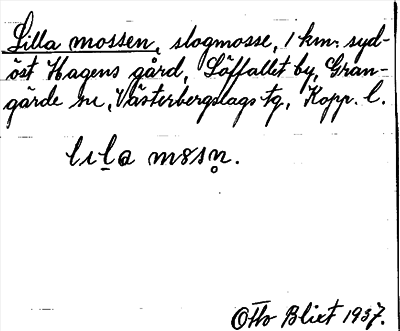 Lilla mossen, slogmosse, 1 km. syd-
öst Hagens gård, Löffallet by, Gran-
gärde sn, Västerbergslags tg, Kopp. l.
lıla mɞsn̥.
Otto Blixt 1937.